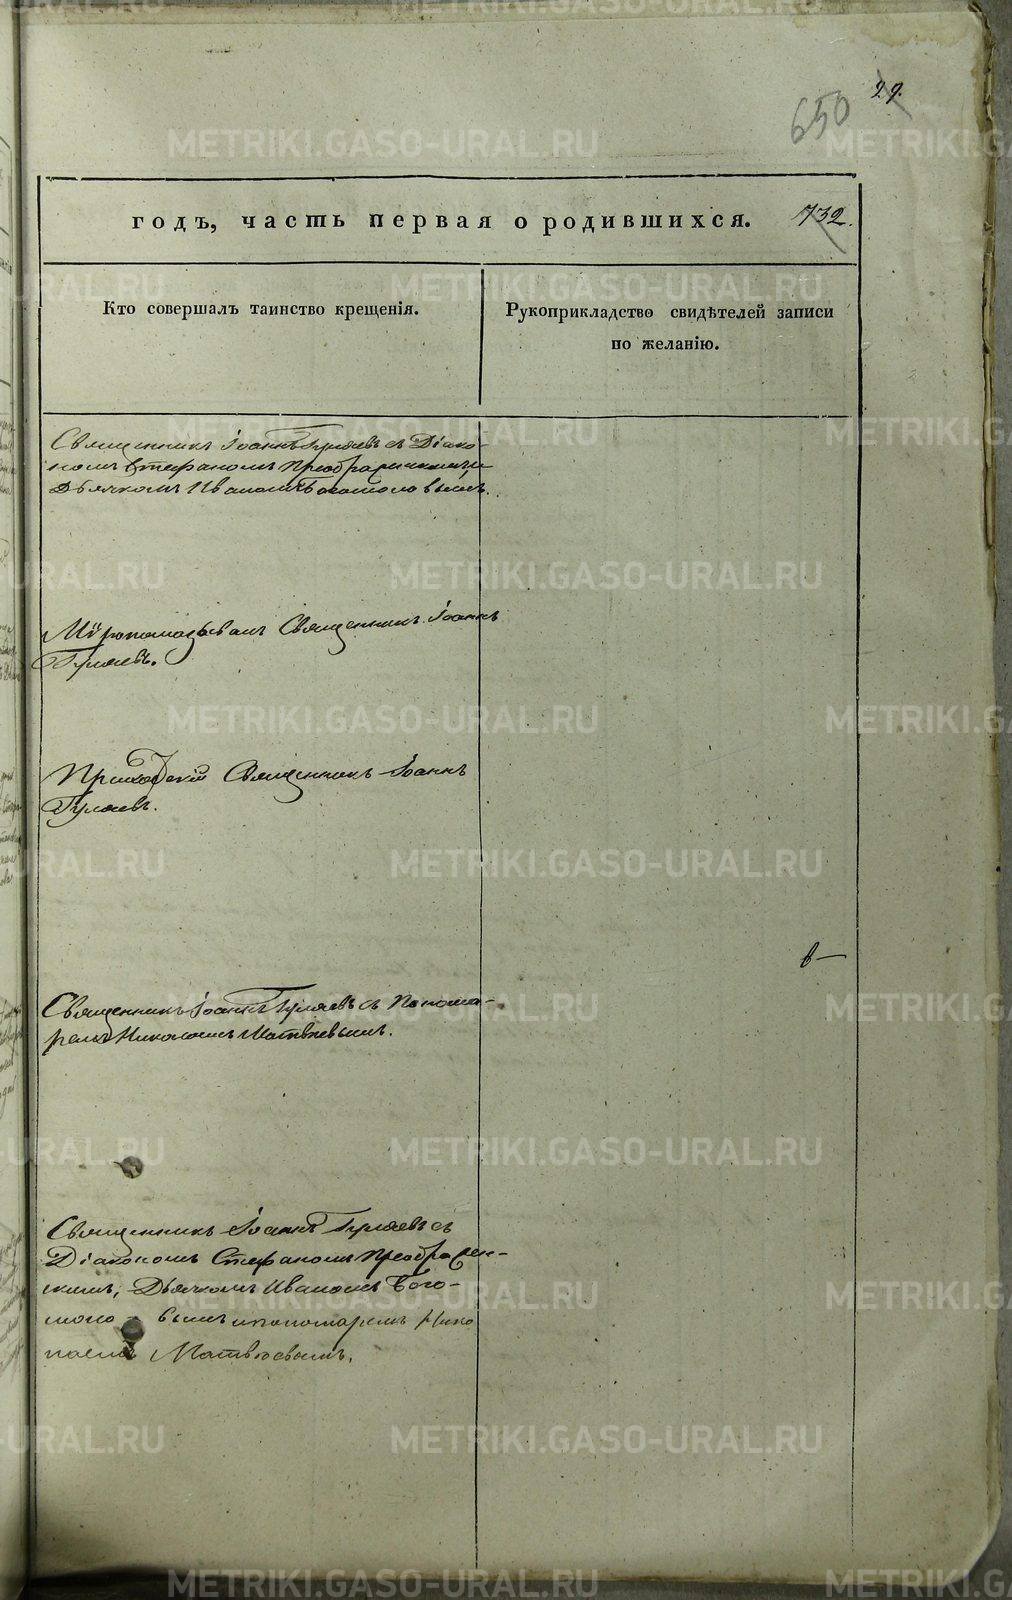 29.
650
годъ, часть первая о родившихся. 732.
Кто совершалъ таинство крещенія.
Рукоприкладство свидѣтелей записи
по желанію.
Священникъ Іоаннъ Гуляевъ съ Діако-
номъ Стефаномъ Преображенскимъ и
Дьячкомъ Иваномъ Богомоловымъ.
Мѵропомазывалъ Священникъ Іоаннъ
Гуляевъ.
Приходскій Священникъ Іоаннъ
Гуляевъ.
в—
Священникъ Іоаннъ Гуляевъ съ Понома-
ремъ Николаемъ Матвѣевымъ.
Священникъ Іоаннъ Гуляевъ съ
Діакономъ Стефаномъ Преображен-
скимъ, Дьячкомъ Иваномъ Бого-
моло вымъ и пономаремъ Нико
лаемъ Матвѣевымъ.
METRIKI.GASO-URAL.RU